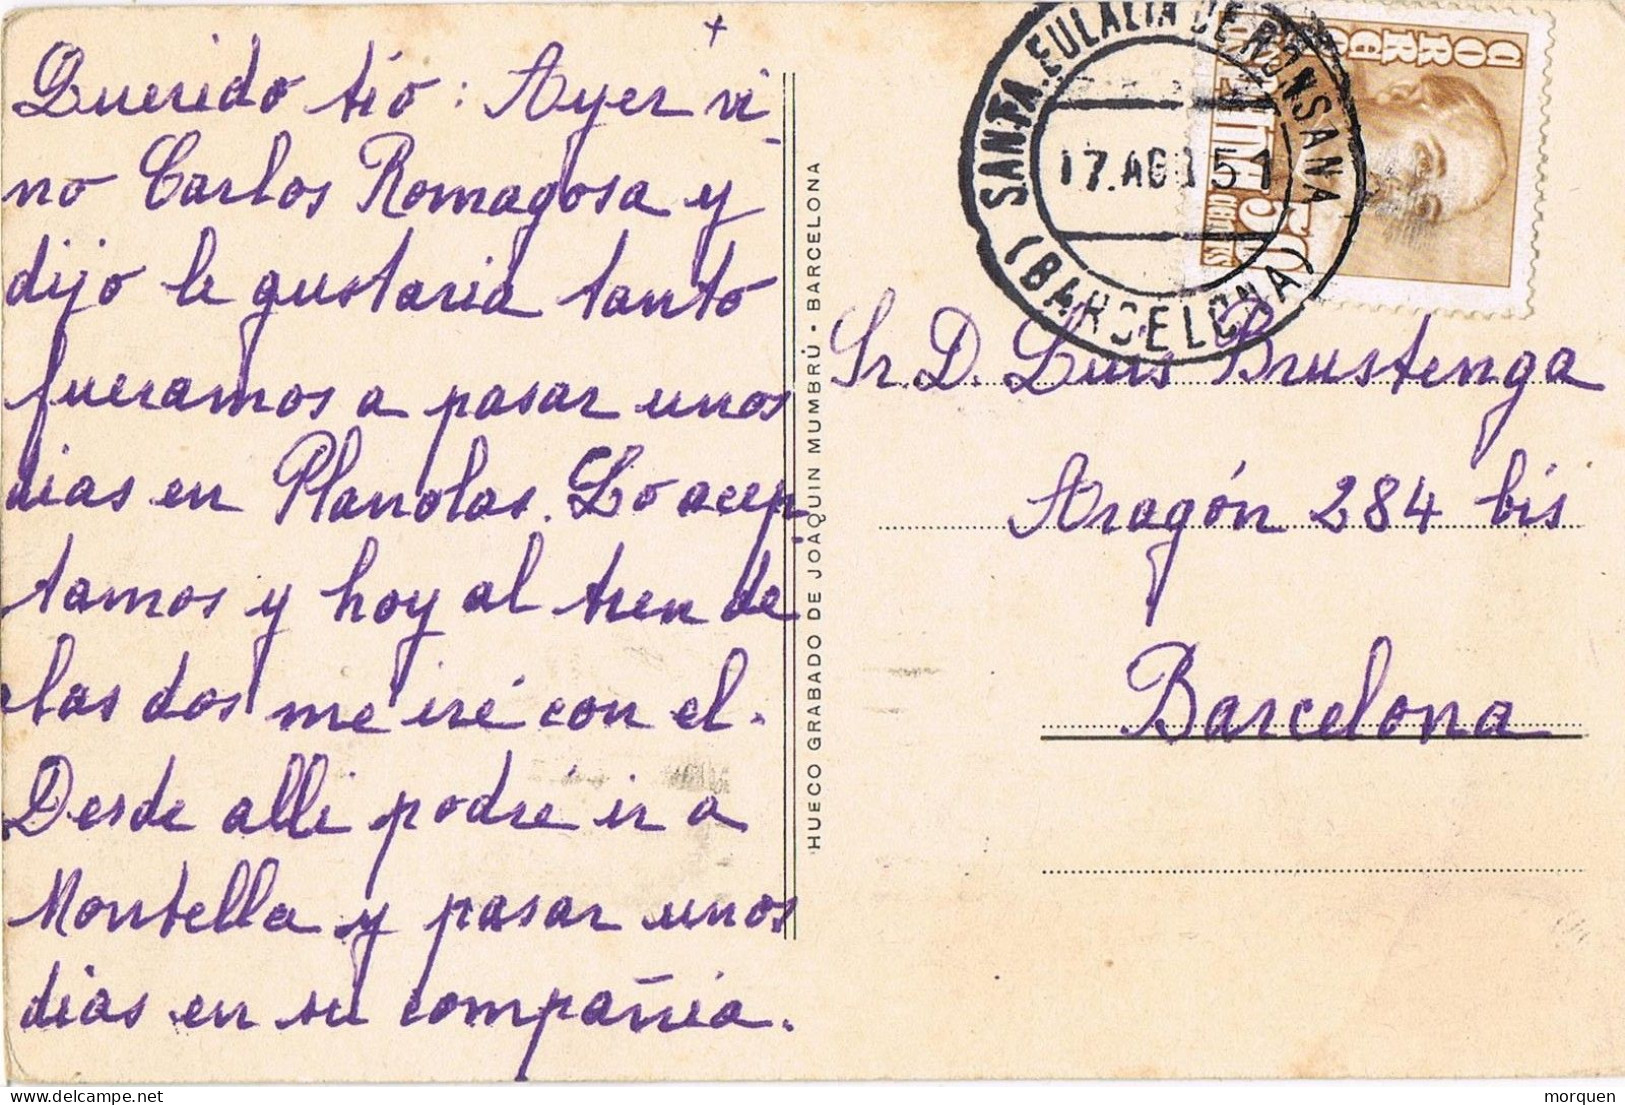 +
Querido tío: Ayer vi-
no Carlos Romagosa y
dijo le gustaria tanto
fueramos a pasar unos
dias en Planolas. Lo acep-
tamos y hoy al tren de
las dos me iré con el.
Desde alli podré ir a
Montella y pasar unos
dias en su compañia.
HUECO GRABADO DE JOAQUIN MUMBRÚ · BARCELONA
SANTA EULALIA DE RONSANA
17.AGO 51
(BARCELONA)
CORREOS
50
Sr. D. Luis Brustenga
Aragón 284 bis
Barcelona
morquen